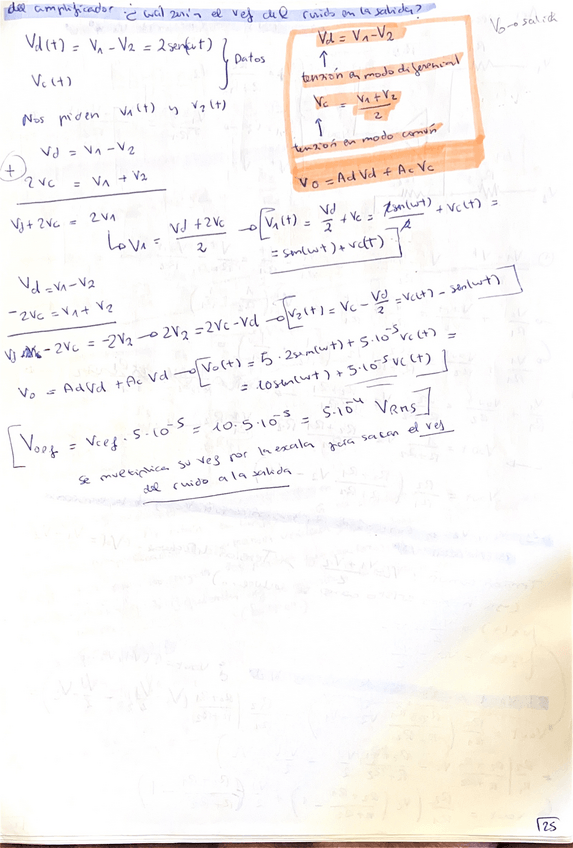 del amplificador ¿Cuál sería el vef del ruido en la salida?
Vo → salida
Vd(t) = V1 - V2 = 2sen(ωt)
Vc(t)
} Datos
Nos piden V1(t) y V2(t)
Vd = V1 - V2
↑
tensión en modo diferencial
Vc = (V1 + V2)/2
↑
tensión en modo común
Vo = AdVd + AcVc
Vd = V1 - V2
+
2Vc = V1 + V2
Vd + 2Vc = 2V1
↳ V1 = (Vd + 2Vc)/2 → [V1(t) = Vd/2 + Vc = 2sen(ωt)/2 + Vc(t) =
= sen(ωt) + Vc(t)]
Vd = V1 - V2
-2Vc = V1 + V2
Vd - 2Vc = -2V2 → 2V2 = 2Vc - Vd → [V2(t) = Vc - Vd/2 = Vc(t) - sen(ωt)]
Vo = AdVd + AcVd → [Vo(t) = 5·2sen(ωt) + 5·10^-5 Vc(t) =
= 10sen(ωt) + 5·10^-5 Vc(t)]
[Voef = Vcef · 5·10^-5 = 10·5·10^-5 = 5·10^-4 VRMS]
se multiplica su vef por la escala para sacar el vef
del ruido a la salida
25